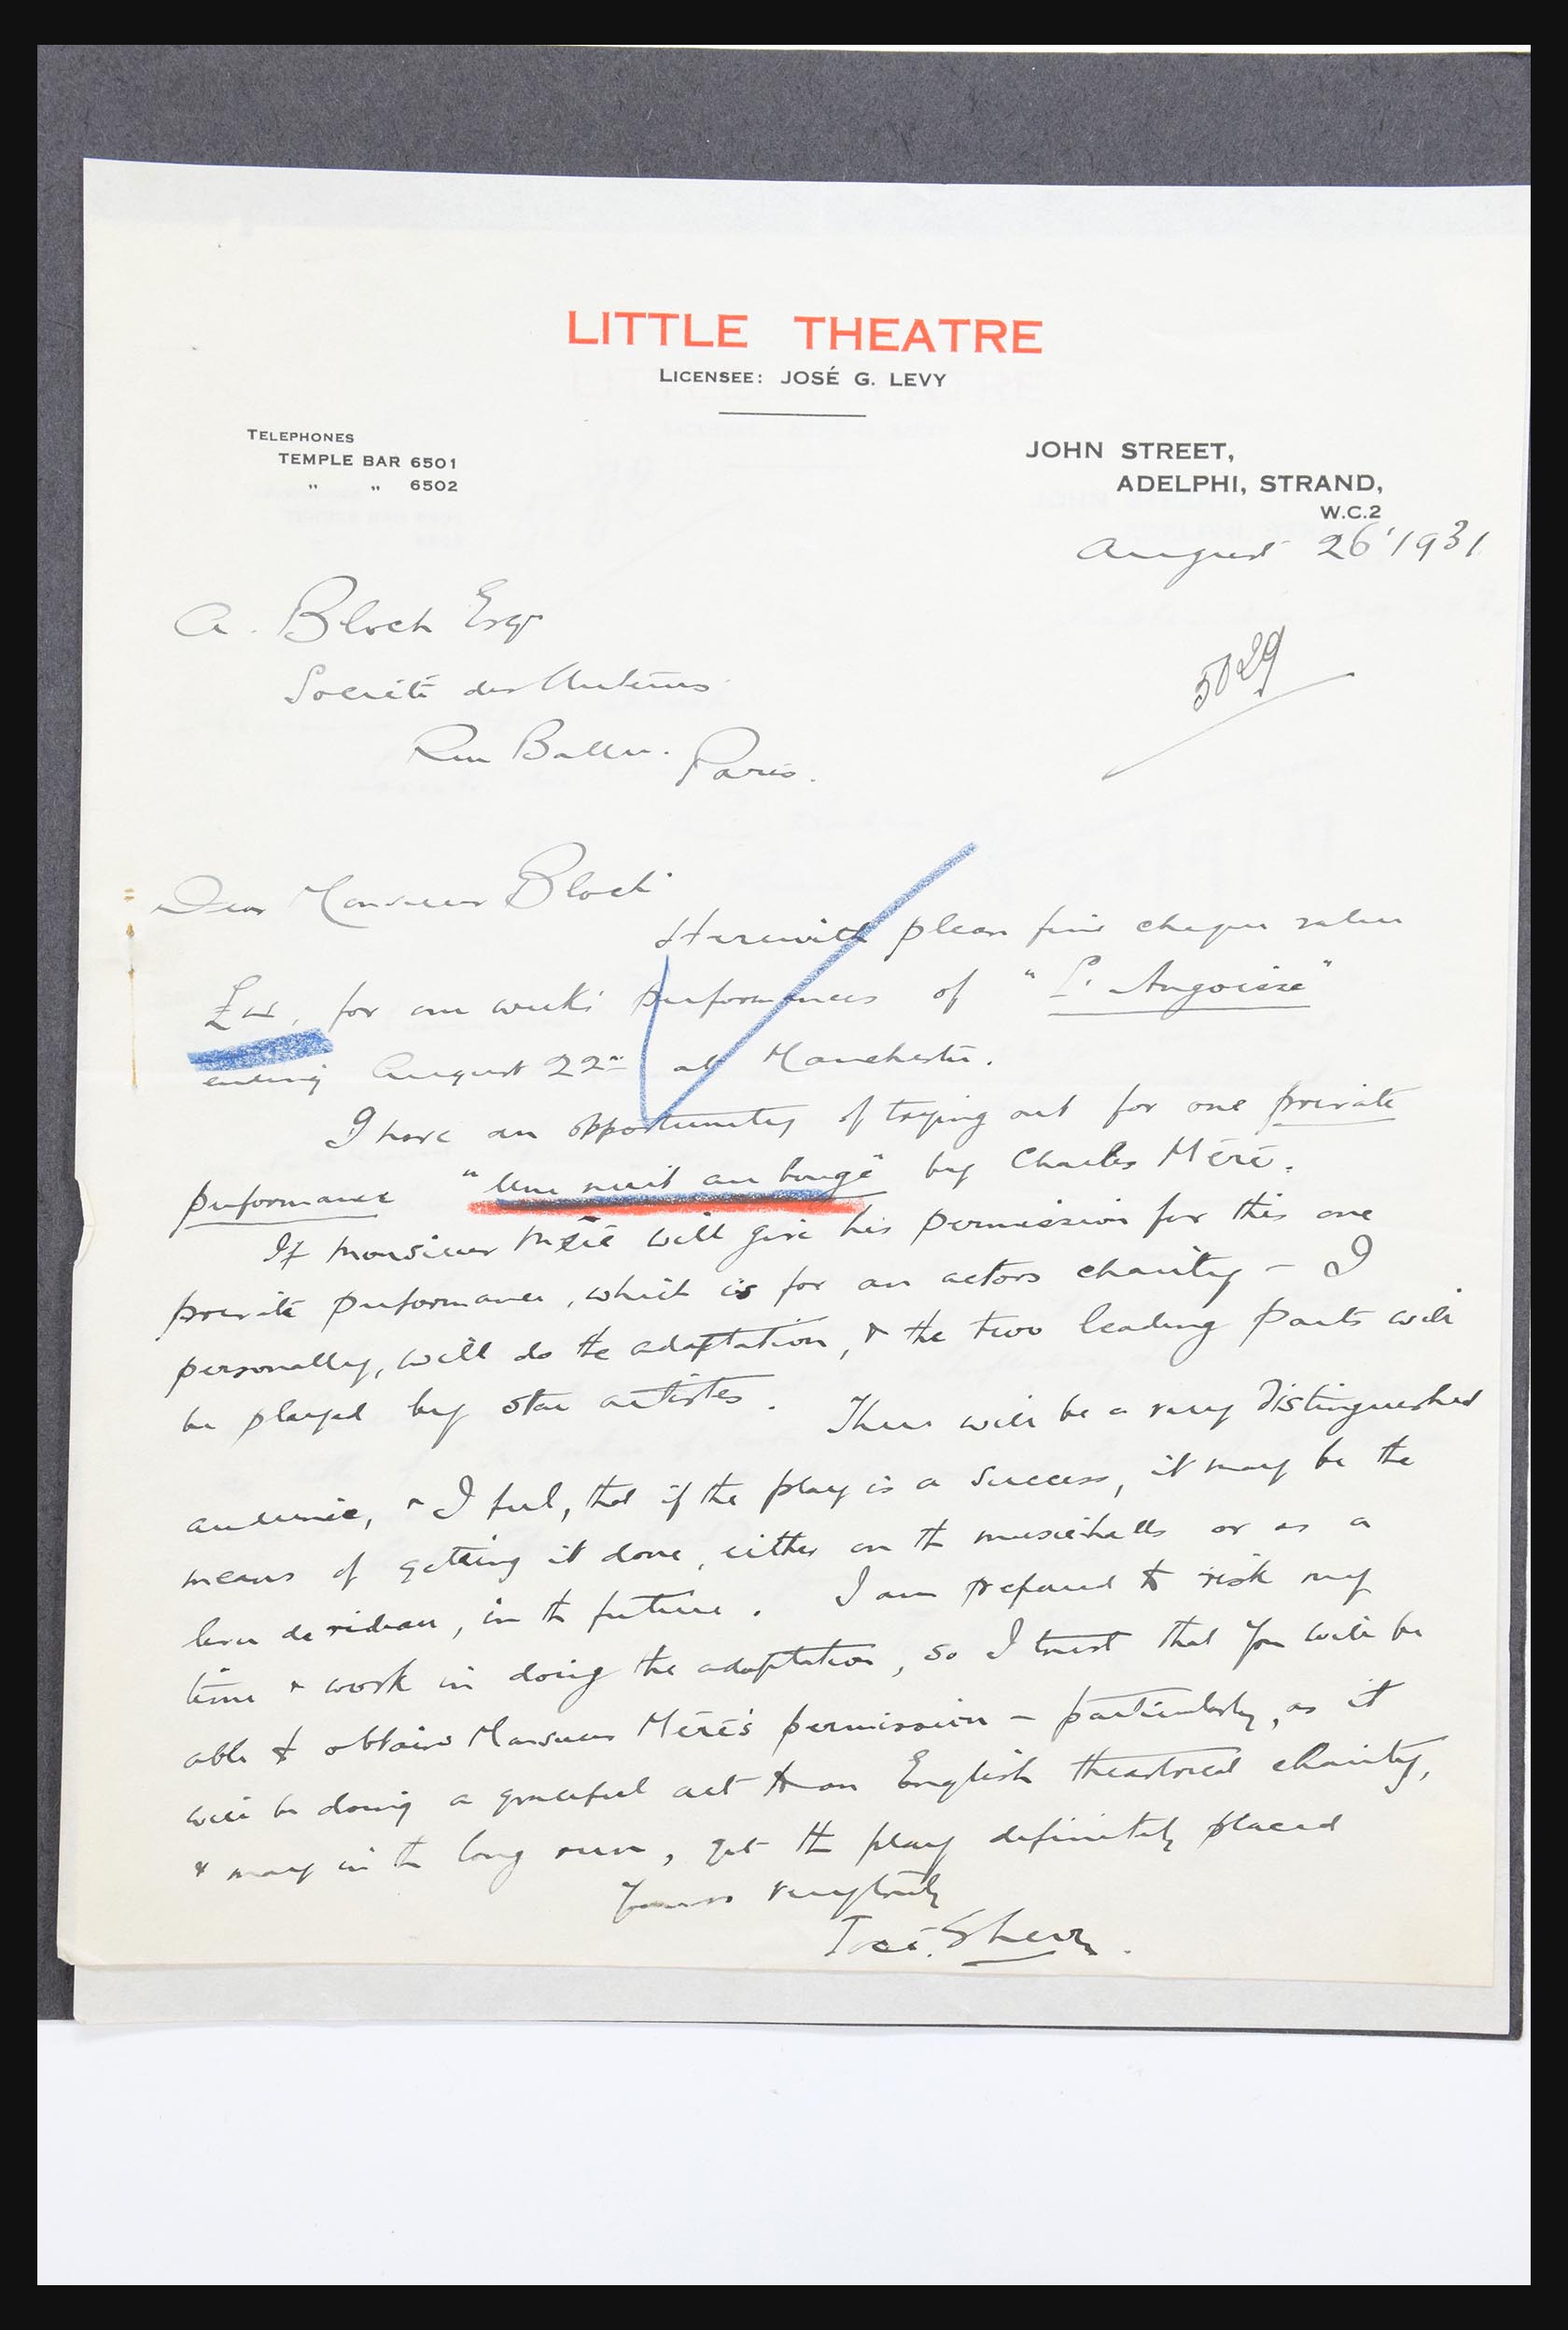 LITTLE THEATRE
LICENSEE: JOSÉ G. LEVY
TELEPHONES
TEMPLE BAR 6501
" " 6502
JOHN STREET,
ADELPHI, STRAND,
W.C.2
August 26' 1931
A. Bloch Esqr
Societé des Auteurs
Rue Ballu. Paris.
5029
Dear Monsieur Bloch
Herewith please find cheque value
for one week's performances of "L'Angoisse"
ending August 22nd at Manchester.
I have an opportunity of trying out for one private
performance "Une nuit au bouge" by Charles Méré.
If Monsieur Méré will give his permission for this one
private performance, which is for an actors charity – I
personally, will do the adaptation, & the two leading parts will
be played by star artistes. There will be a very distinguished
audience, & I feel, that if the play is a success, it may be the
means of getting it done, either on the musichalls or as a
lever de rideau, in the future. I am prepared to risk my
time & work in doing the adaptation, so I trust that you will be
able to obtain Monsieur Méré's permission – particularly, as it
will be doing a graceful act to an English theatrical charity,
& may in the long run, get the play definitely placed
Yours very truly
José. G Levy.